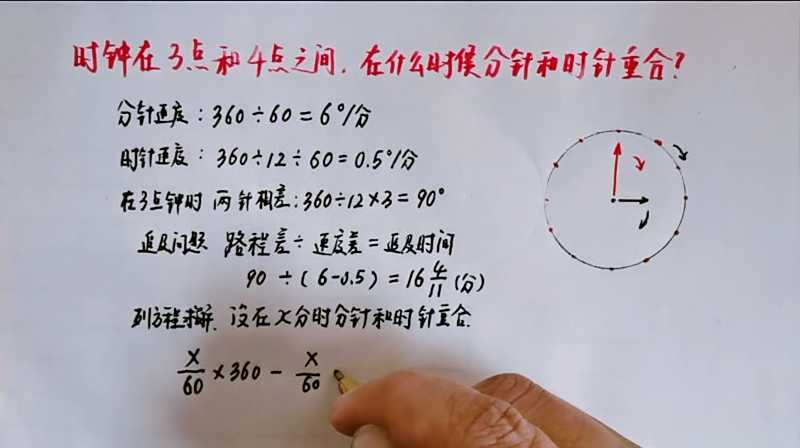 时钟在3点和4点之间,在什么时候分针和时针重合?
分针速度:360÷60=6°/分
时针速度:360÷12÷60=0.5°/分
在3点钟时 两针相差:360÷12×3=90°
追及问题 路程差÷速度差=追及时间
90÷(6-0.5)=16 4/11(分)
列方程解.设在x分时分针和时针重合.
x/60×360-x/60